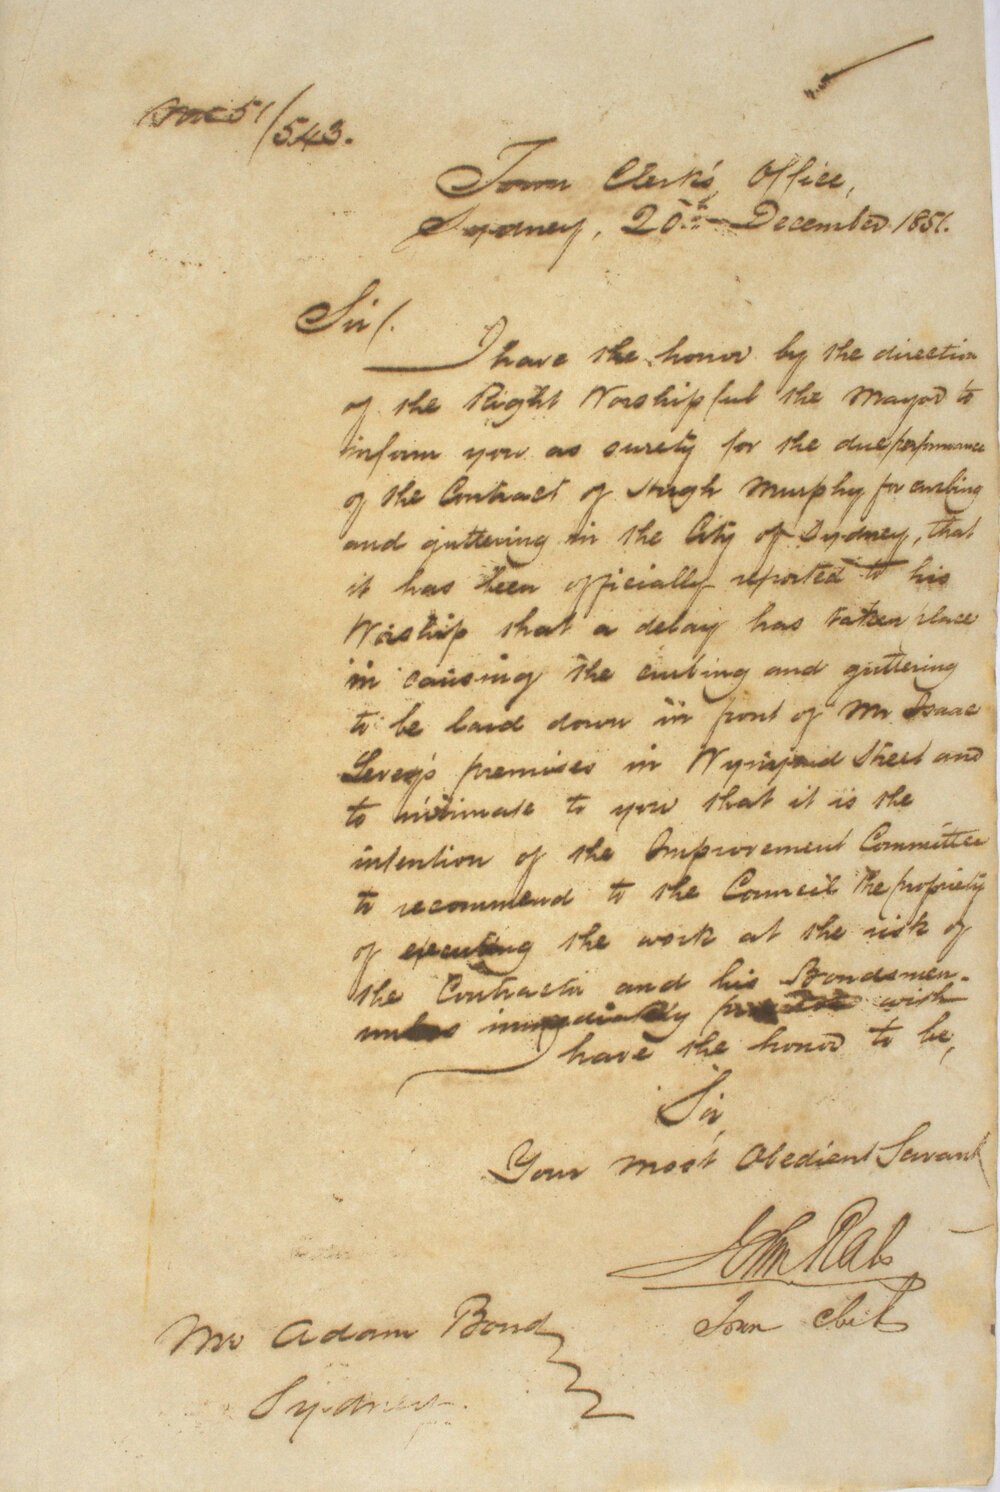 51/543.
Town Clerk's Office,
Sydney, 20th December 1851.
Sir/.
I have the honor by the direction
of the Right Worshipful the Mayor to
inform you as surety for the due performance
of the Contract of Hugh Murphy for curbing
and guttering in the City of Sydney, that
it has been officially reported to his
Worship that a delay has taken place
in causing the curbing and guttering
to be laid down in front of Mr Isaac
Levey's premises in Wynyard Street and
to intimate to you that it is the
intention of the Improvement Committee
to recommend to the Council the propriety
of executing the work at the risk of
the Contractor and his Bondsmen.
unless immediately proceeded with
I have the honor to be,
Sir,
Your most Obedient Servant
John Rae
Town Clerk
Mr Adam Bond
Sydney.